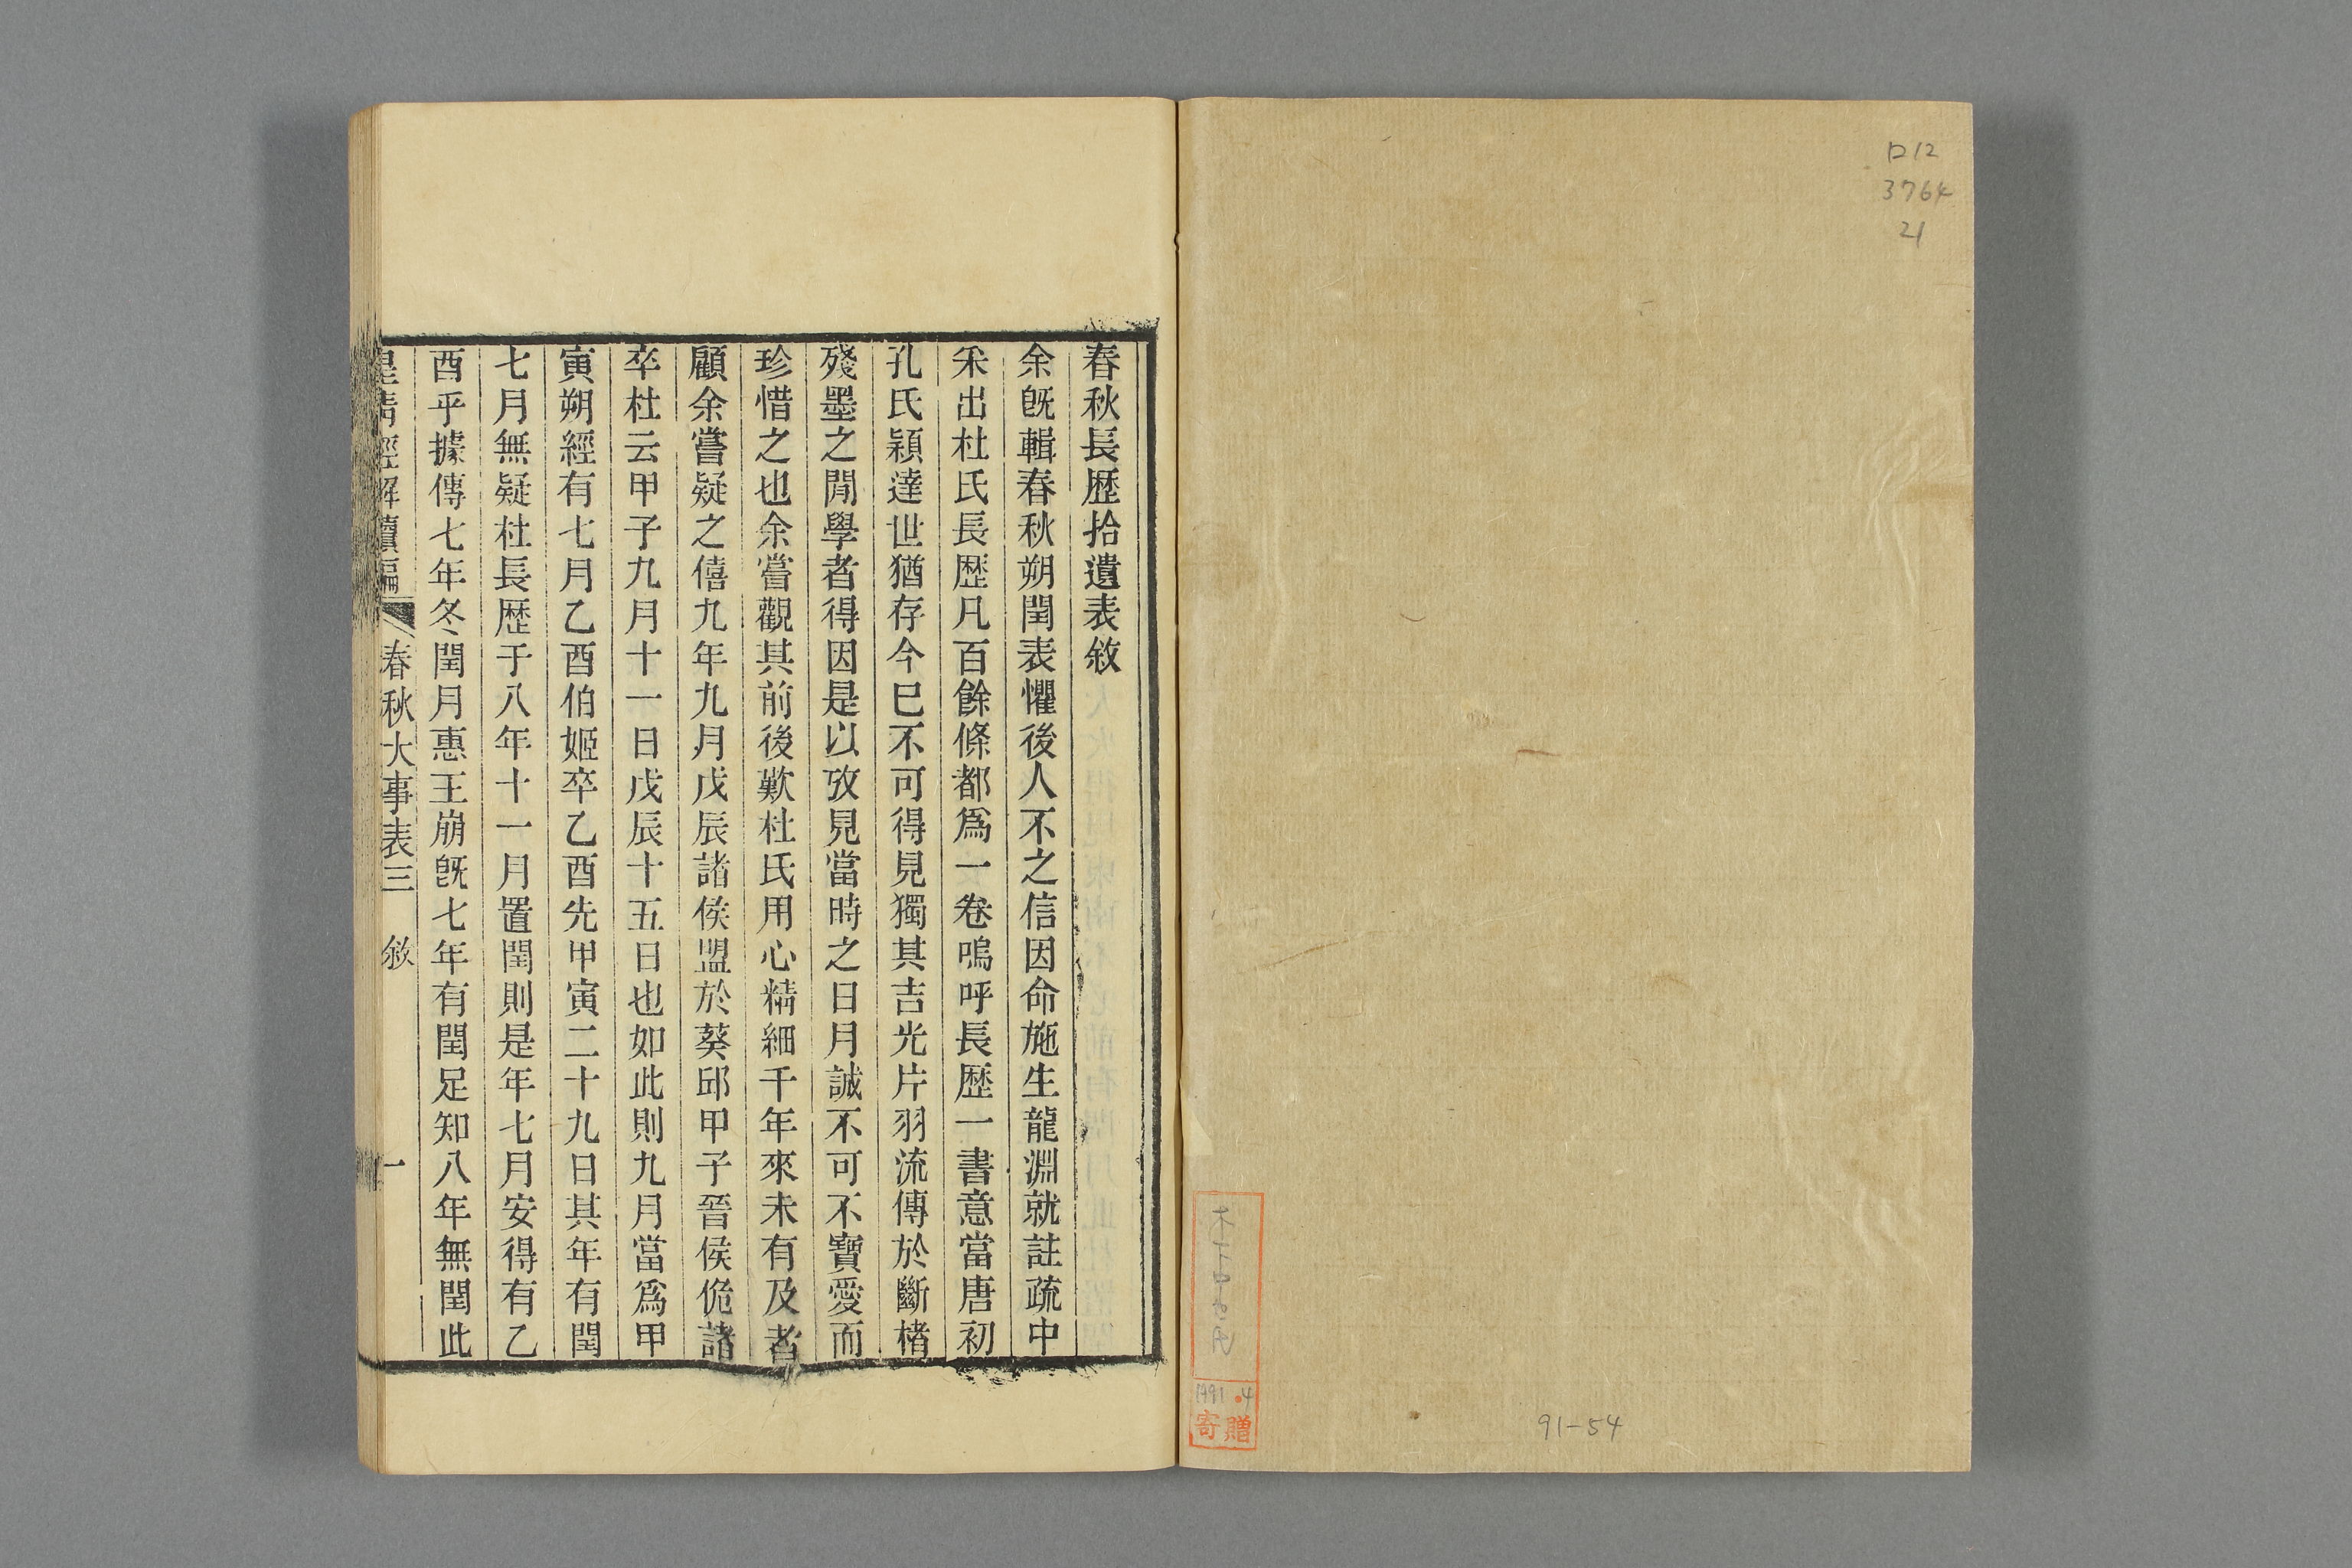 ロ12
3764
21
1991.4
寄贈
91-54
春秋長歴拾遺表敘
余旣輯春秋朔閏表懼後人不之信因命施生龍淵就註疏中
采出杜氏長歴凡百餘條都爲一卷嗚呼長歴一書意當唐初
孔氏穎達世猶存今巳不可得見獨其吉光片羽流傳於斷楮
殘墨之閒學者得因是以攷見當時之日月誠不可不寶愛而
珍惜之也余嘗觀其前後歎杜氏用心精細千年來未有及者
顧余嘗疑之僖九年九月戊辰諸侯盟於葵邱甲子晉侯佹諸
卒杜云甲子九月十一日戊辰十五日也如此則九月當爲甲
寅朔經有七月乙酉伯姬卒乙酉先甲寅二十九日其年有閏
七月無疑杜長歴于八年十一月置閏則是年七月安得有乙
酉乎據傳七年冬閏月惠王崩旣七年有閏足知八年無閏此
皇清經解續編 春秋大事表三 敘 一